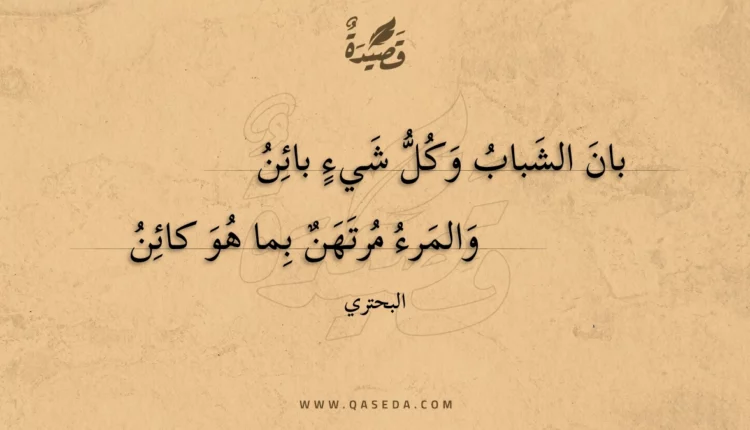 قَصِيْدَةٌ
بانَ الشَبابُ وَكُلُّ شَيءٍ بائِنُ
وَالمَرءُ مُرتَهَنٌ بِما هُوَ كائِنُ
البحتري
WWW.QASEDA.COM